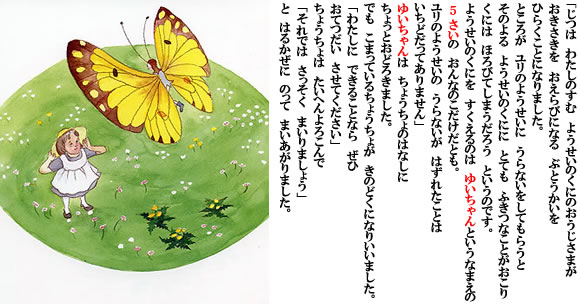 「じつは わたしのすむ ようせいのくにのおうじさまが
おきさきを おえらびになる ぶとうかいを
ひらくことになりました。
ところが ユリのようせいに うらないをしてもらうと
そのよる ようせいのくにに とても ふきつなことがおこり
くには ほろびてしまうだろう というのです。
ようせいのくにを すくえるのは ゆいちゃんというなまえの
5さいの おんなのこだけだとも。
ユリのようせいの うらないが はずれたことは
いちどだってありません」
ゆいちゃんは ちょうちょのはなしに
ちょっとおどろきました。
でも こまっているちょうちょが きのどくになりいいました。
「わたしに できることなら ぜひ
おてつだい させてください」
ちょうちょは たいへんよろこんで
「それでは さっそく まいりましょう」
と はるかぜに のって まいあがりました。